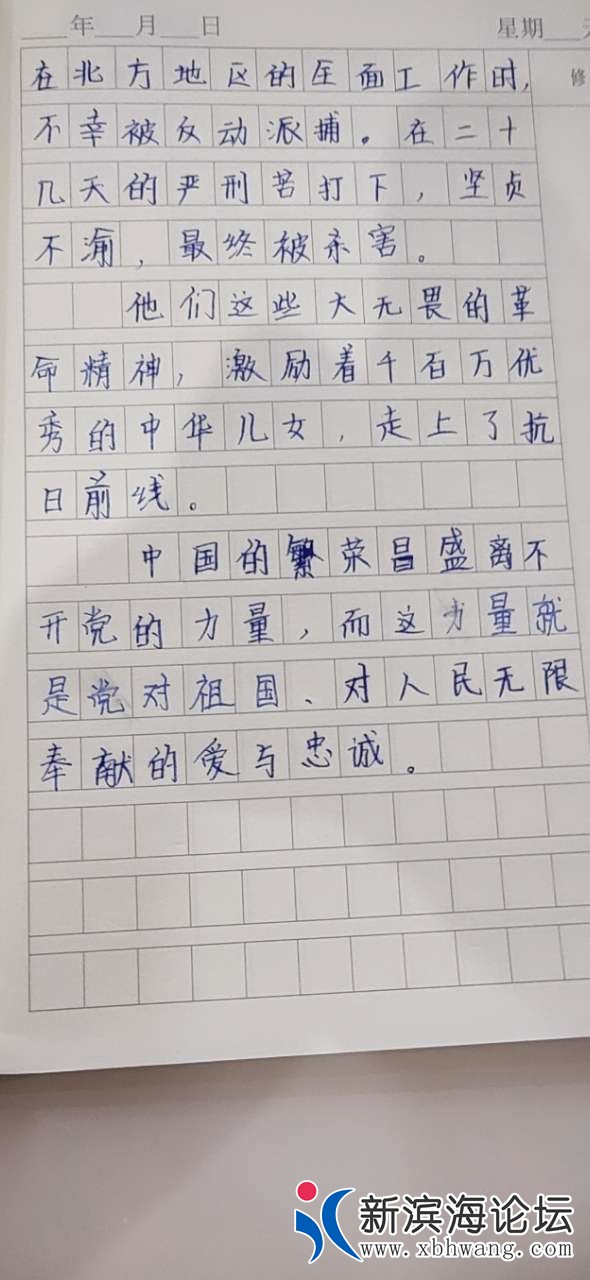 ___年___月___日 星期___天
修
在北方地区的全面工作时,
不幸被反动派捕。在二十
几天的严刑苦打下,坚贞
不渝,最终被杀害。
他们这些大无畏的革
命精神,激励着千百万优
秀的中华儿女,走上了抗
日前线。
中国的繁荣昌盛离不
开党的力量,而这力量就
是党对祖国、对人民无限
奉献的爱与忠诚。
新滨海论坛
www.xbhwang.com